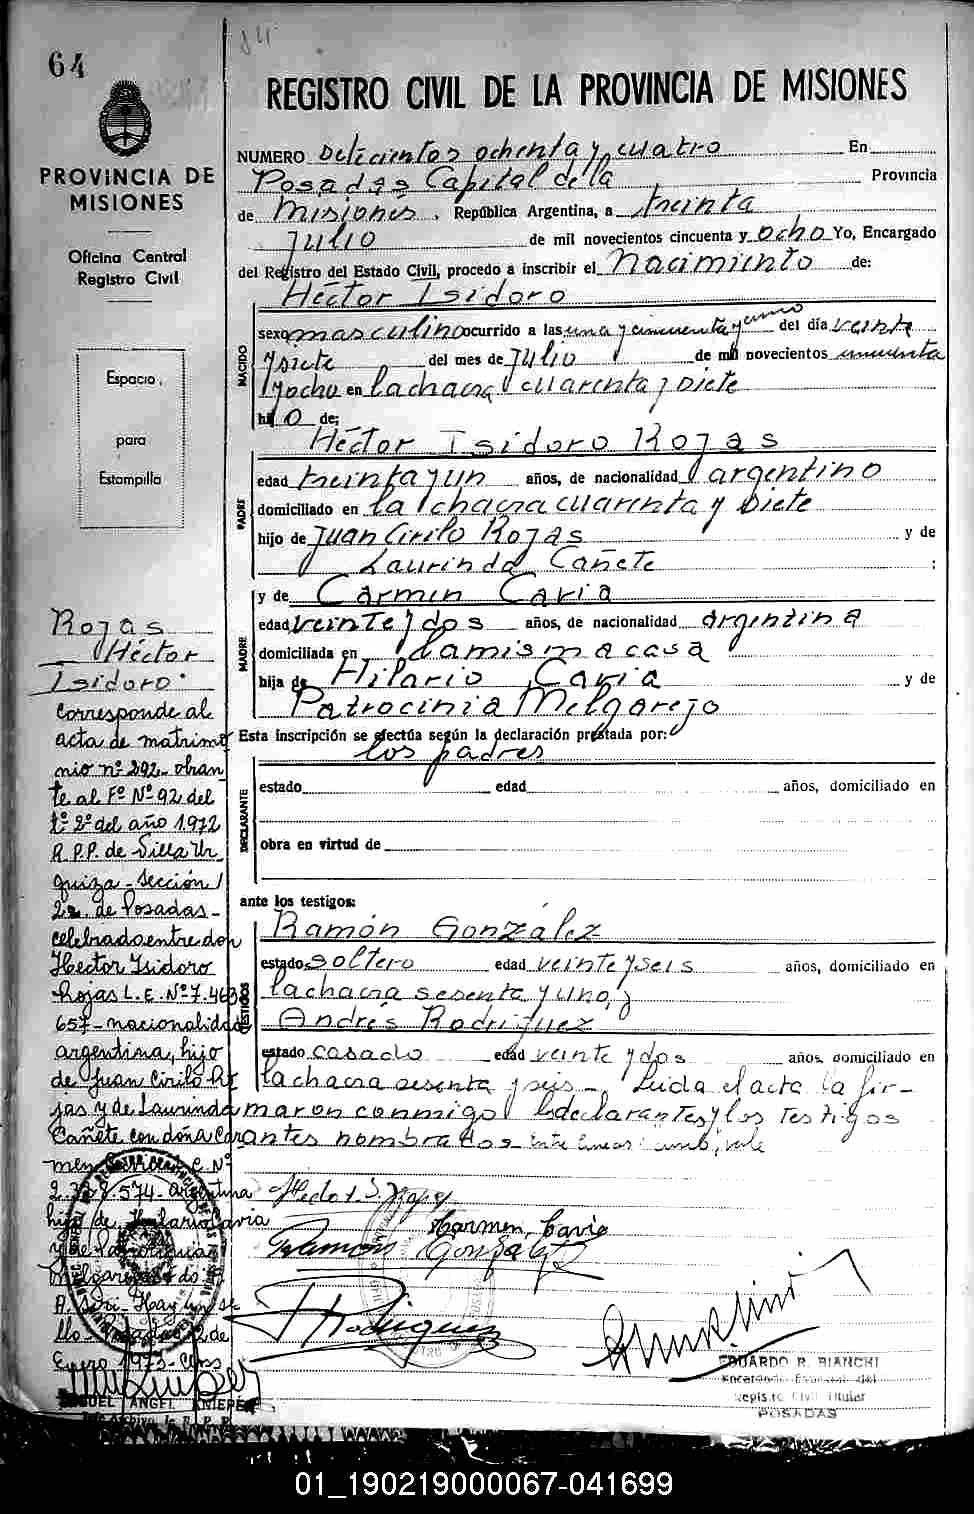 64
84
REGISTRO CIVIL DE LA PROVINCIA DE MISIONES
PROVINCIA DE
MISIONES
Oficina Central
Registro Civil
Espacio
para
Estampilla
NUMERO Setecientos ochenta y cuatro En
Posadas Capital de la Provincia
de Misiones, República Argentina, a treinta
Julio de mil novecientos cincuenta y Ocho Yo, Encargado
del Registro del Estado Civil, procedo a inscribir el Nacimiento de:
Héctor Isidoro
NACIDO
sexo masculino ocurrido a las una y cincuenta y uno del día veinte
y siete del mes de Julio de mil novecientos cincuenta
y ocho en la chacra cuarenta y siete
hijo de:
Héctor Isidoro Rojas
PADRE
edad treinta y un años, de nacionalidad argentino
domiciliado en la chacra cuarenta y siete
hijo de Juan Cirilo Rojas y de
Laurinda Cañete ;
y de Carmen Cavia
MADRE
edad veinte y dos años, de nacionalidad argentina
domiciliada en la misma casa
hija de Hilario Cavia y de
Patrocinia Melgarejo
Esta inscripción se efectúa según la declaración prestada por:
los padres
DECLARANTE
estado edad años, domiciliado en
obra en virtud de
ante los testigos:
TESTIGOS
Ramón González
estado soltero edad veinte y seis años, domiciliado en
la chacra sesenta y uno, y
Andrés Rodríguez
estado casado edad veinte y dos años, domiciliado en
la chacra sesenta y seis - Leida el acta la fir-
maron conmigo los declarantes y los testigos
antes nombrados - Entre líneas: uno, vale
Hector I. Rojas
Carmen Cavia
Ramón González
Rodriguez
EDUARDO R. BIANCHI
Encargado
Registro Civil Titular
POSADAS
Rojas
Héctor
Isidoro.
Corresponde al
acta de matrimo
nio nº 292- obran
te al Fº Nº 92 del
Iº 2º del año 1972
R.P.P. de Villa Ur
quiza - Sección
2a. de Posadas -
celebrado entre don
Hector Isidoro
Rojas L.E. Nº 7.463
657 - nacionalidad
argentina, hijo
de Juan Cirilo Ro
jas y de Laurinda
Cañete con doña Car
men Cavia C. Nº
574 - argentina
hija de Hilario Cavia
y de Patrocinia
Melgarejo
Hay un se
llo - Posadas 2 de
Enero 1973 -
MIGUEL ANGEL
01_190219000067-041699